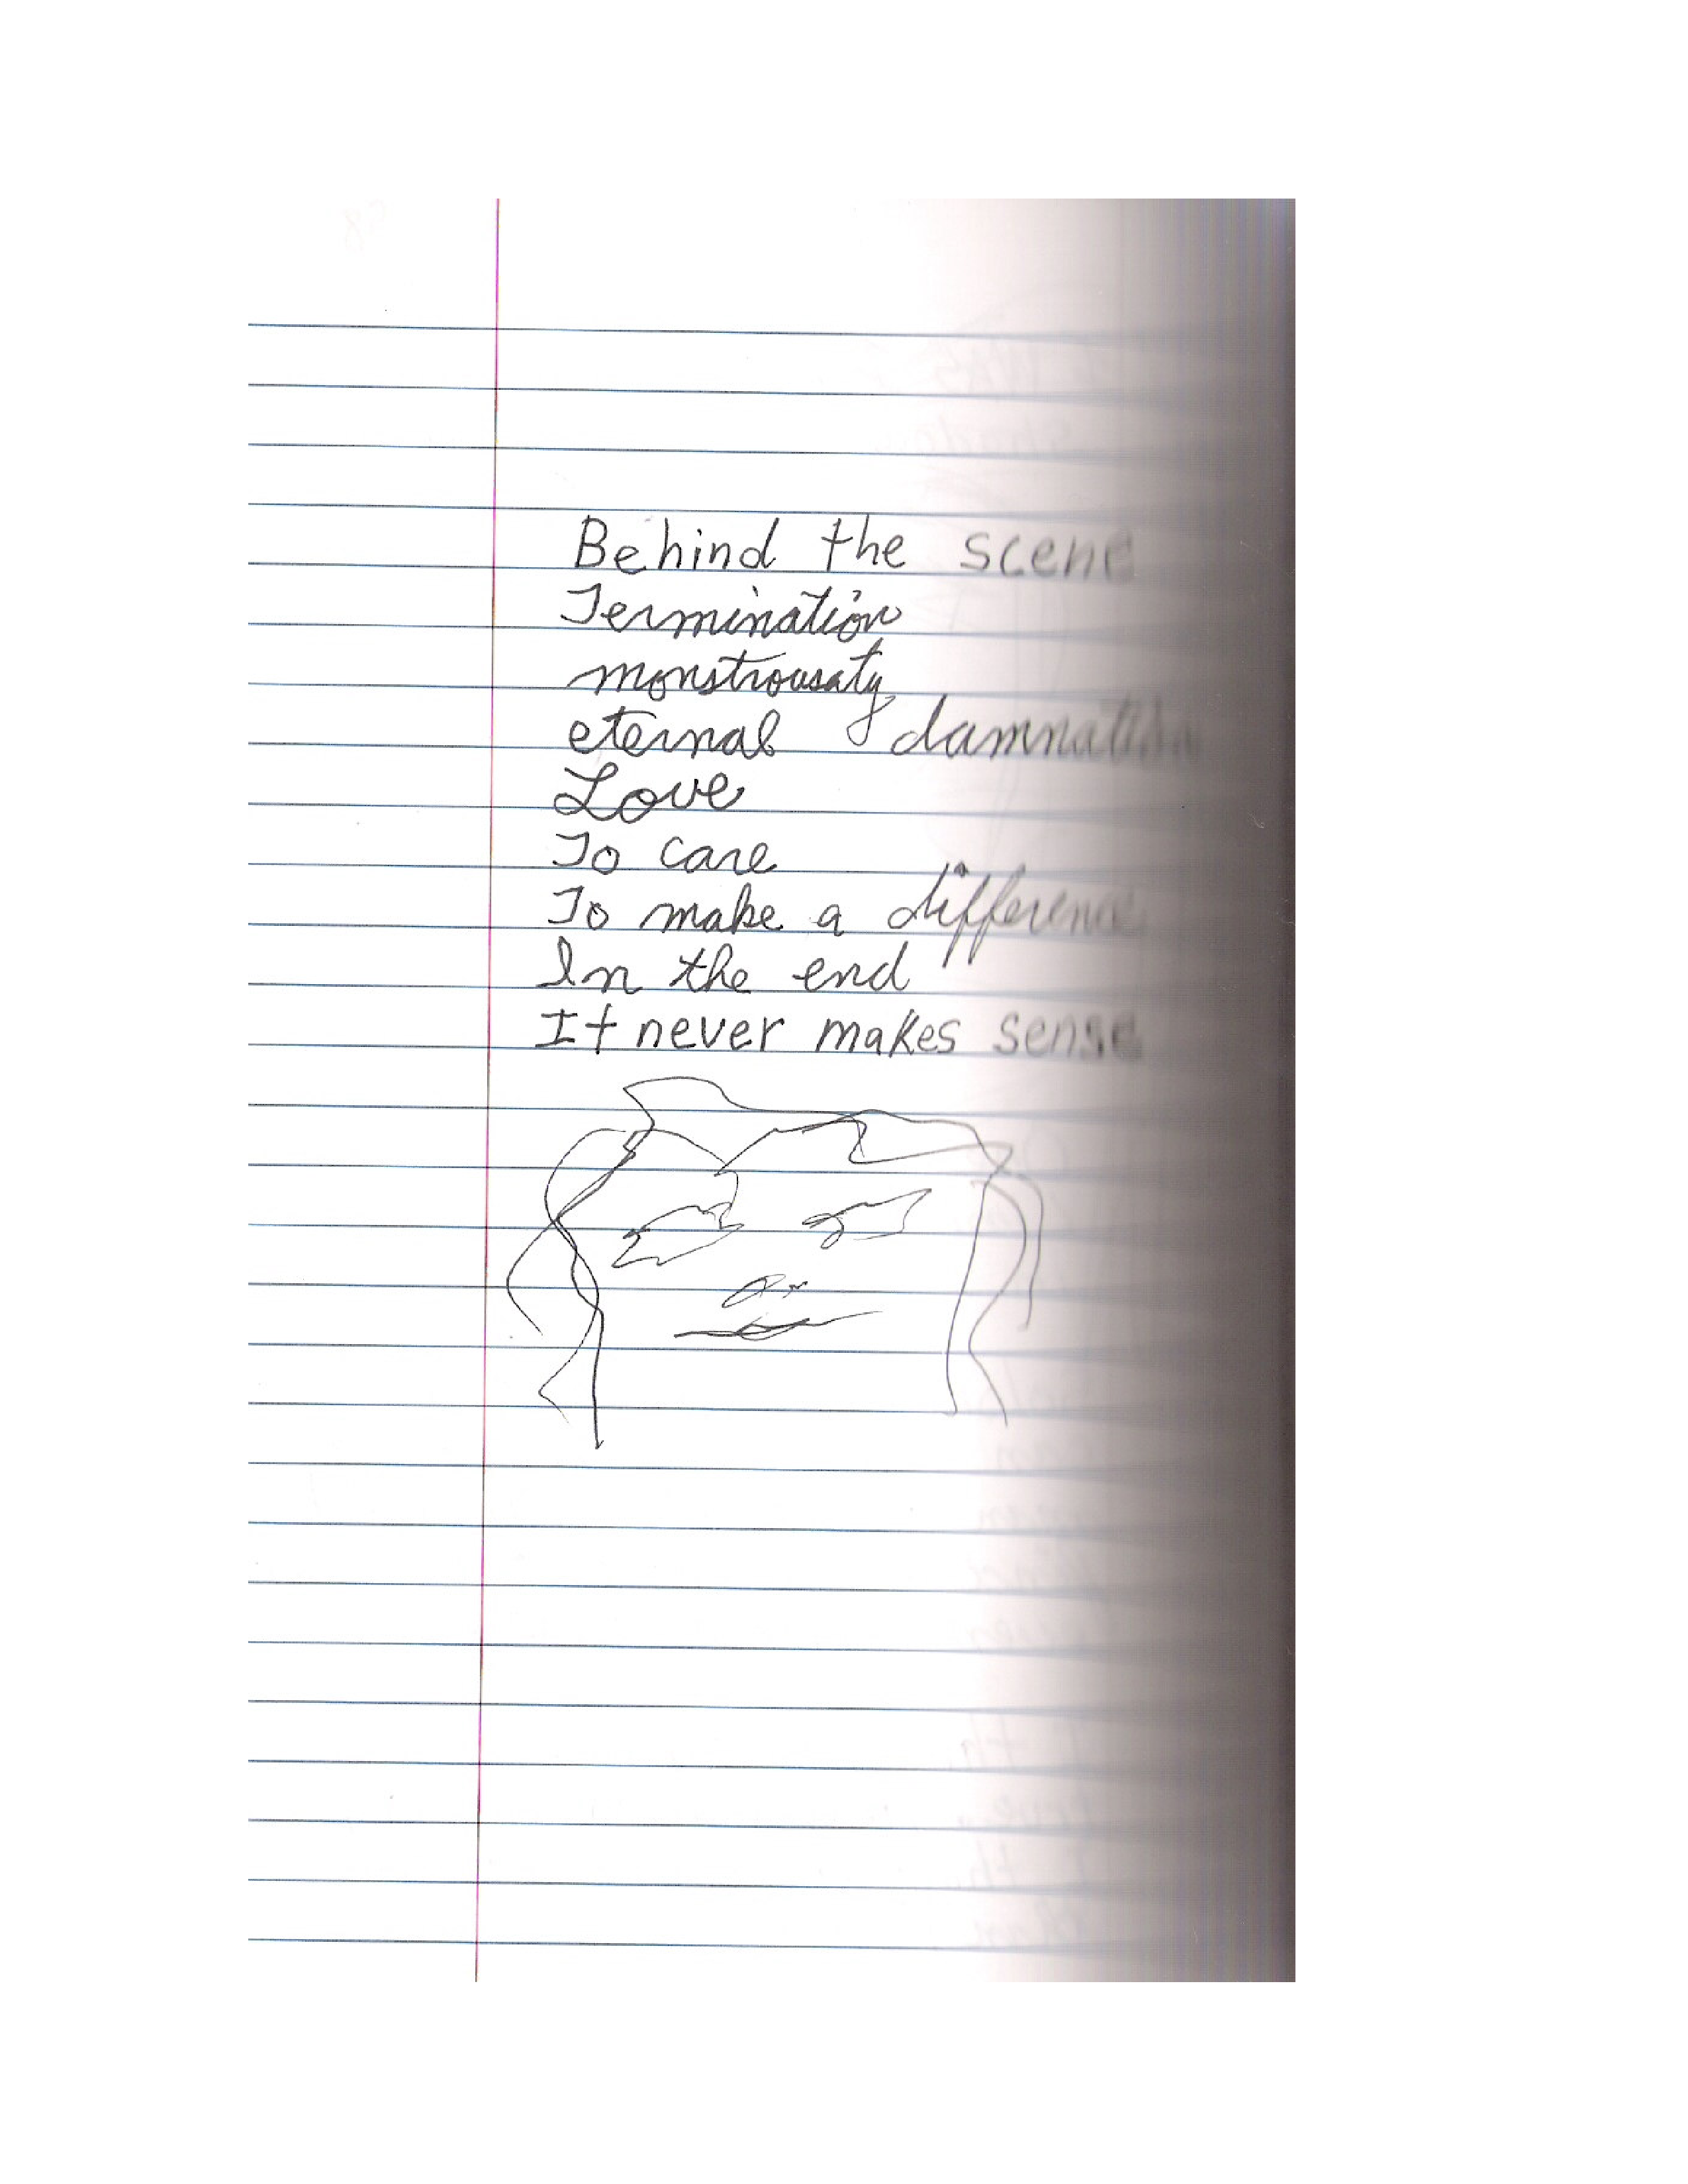 Behind the scene
Termination
monstrousaty
eternal damnation
Love
To care
To make a difference
In the end
It never makes sense